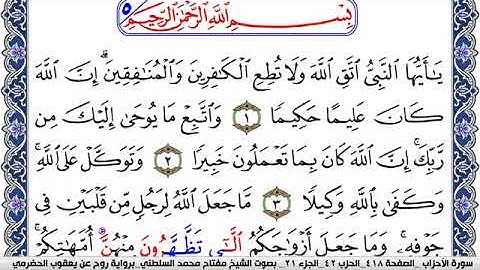 بِسْمِ ٱللَّهِ ٱلرَّحْمَٰنِ ٱلرَّحِيمِ ٥
يَـٰٓأَيُّهَا ٱلنَّبِىُّ ٱتَّقِ ٱللَّهَ وَلَا تُطِعِ ٱلْكَـٰفِرِينَ وَٱلْمُنَـٰفِقِينَۗ إِنَّ ٱللَّهَ
كَانَ عَلِيمًا حَكِيمًا ١ وَٱتَّبِعْ مَا يُوحَىٰٓ إِلَيْكَ مِن
رَّبِّكَۚ إِنَّ ٱللَّهَ كَانَ بِمَا تَعْمَلُونَ خَبِيرًا ٢ وَتَوَكَّلْ عَلَى ٱللَّهِۚ
وَكَفَىٰ بِٱللَّهِ وَكِيلًا ٣ مَّا جَعَلَ ٱللَّهُ لِرَجُلٍ مِّن قَلْبَيْنِ فِى
جَوْفِهِۦۚ وَمَا جَعَلَ أَزْوَٰجَكُمُ ٱلَّـٰٓـِٔى تَظَّهَّرُونَ مِنْهُنَّ أُمَّهَـٰتِكُمْۚ
سورة الأحزاب _الصفحة ٤١٨ _الحزب ٤٢ _الجزء ٢١ _ بصوت الشيخ مفتاح محمد السلطني _برواية روح عن يعقوب الحضرمي